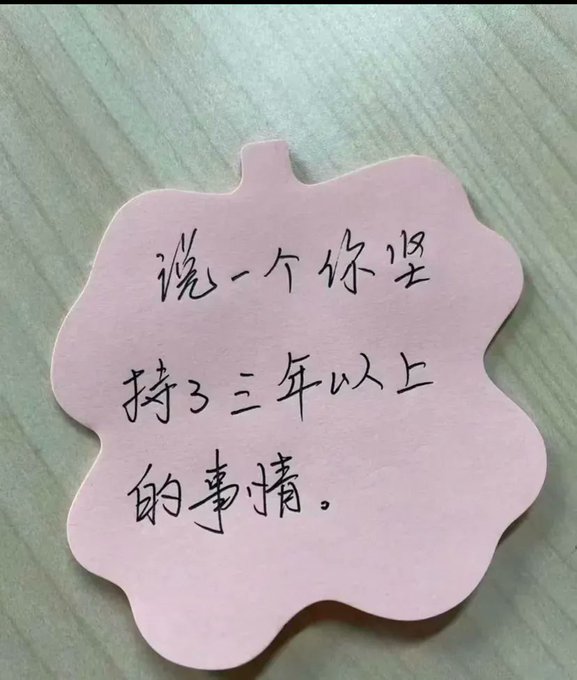 说一个你坚
持了三年以上
的事情。